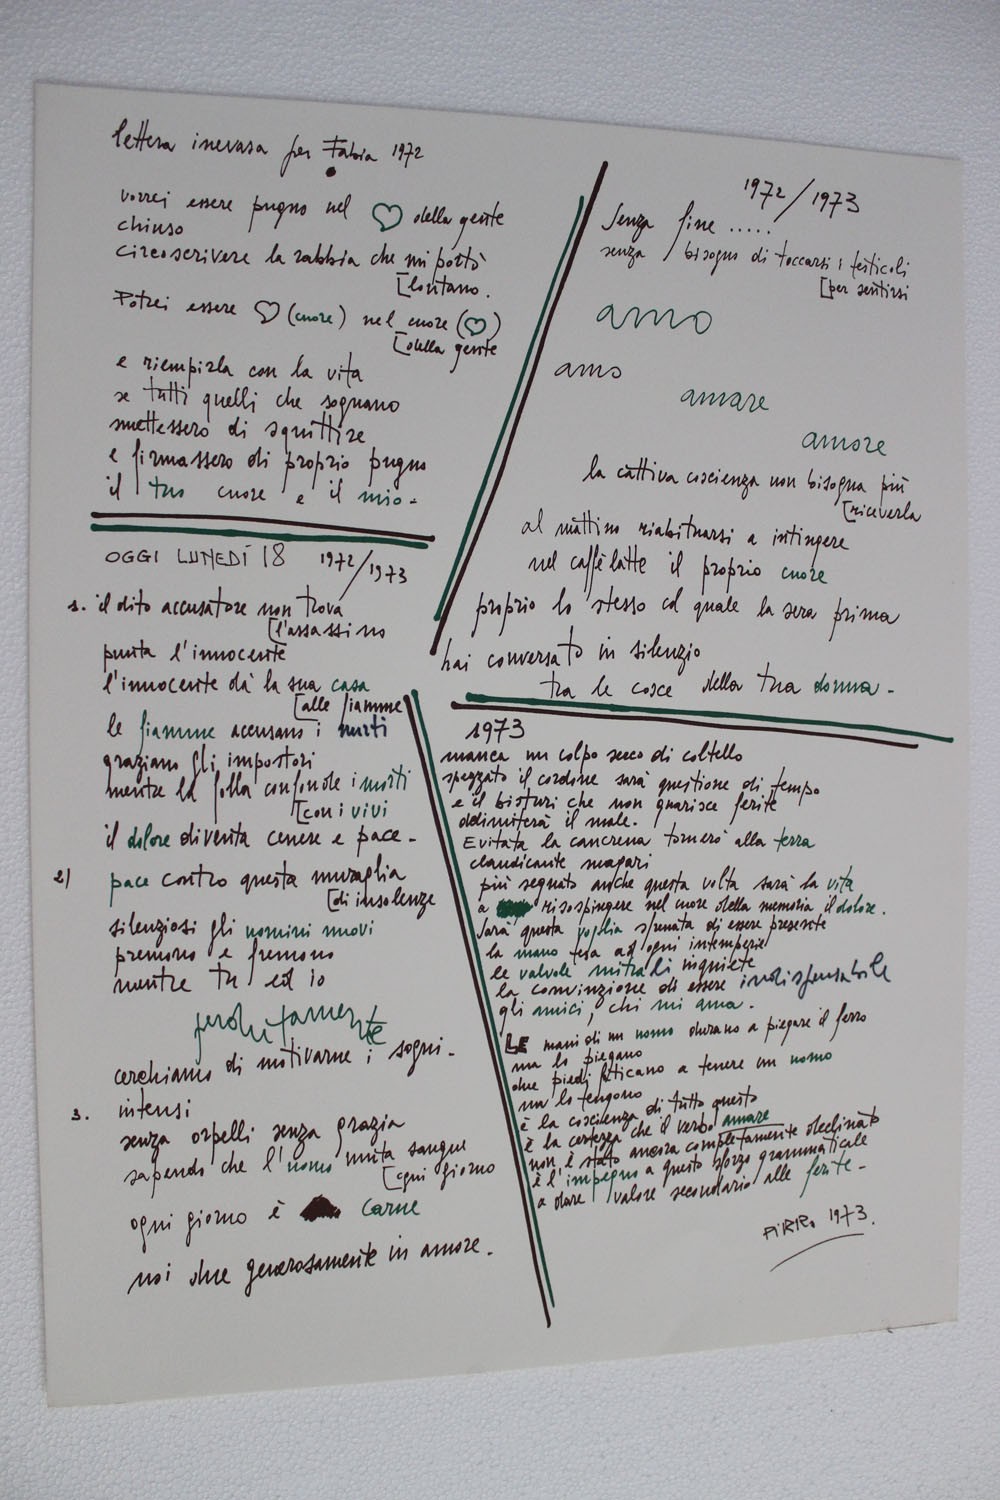 lettera inevasa per Fabia 1972
vorrei essere pugno nel ♡ della gente
chiuso
circoscrivere la rabbia che mi portò
[lontano.
Potrei essere ♡ (cuore) nel cuore (♡)
[della gente
e riempirla con la vita
se tutti quelli che sognano
smettessero di squittire
e firmassero di proprio pugno
il tuo cuore e il mio-
OGGI LUNEDÍ 18 1972/1973
1. il dito accusatore non trova
[l'assassino
punta l'innocente
l'innocente dà la sua casa
[alle fiamme
le fiamme accusano i morti
graziano gli impostori
mentre la folla confonde i morti
[con i vivi
il dolore diventa cenere e pace-
2) pace contro questa muraglia
[di insolenze
silenziosi gli uomini nuovi
premono e fremono
mentre tu ed io
perdutamente
cerchiamo di motivarne i sogni-
3. intensi
senza orpelli senza grazia
sapendo che l'uomo muta sangue
[ogni giorno
ogni giorno è carne
noi due generosamente in amore.
1972/1973
Senza fine .....
senza bisogno di toccarsi i testicoli
[per sentirsi
amo
amo
amare
amore
la cattiva coscienza non bisogna più
[riceverla
al mattino riabituarsi a intingere
nel caffèlatte il proprio cuore
proprio lo stesso col quale la sera prima
hai conversato in silenzio
tra le cosce della tua donna-
1973
manca un colpo secco di coltello
spezzato il cordone sarà questione di tempo
e il bisturi che non guarisce ferite
delimiterà il male.
Evitata la cancrena tornerò alla terra
claudicante magari
più segnato anche questa volta sarà la vita
a risospingere nel cuore della memoria il dolore.
Sarà questa voglia sfrenata di essere presente
la mano tesa ad ogni intemperie
le valvole mitrali inquiete
la convinzione di essere indispensabile
gli amici, chi mi ama.
LE mani di un uomo durano a piegare il ferro
ma lo piegano
due piedi faticano a tenere un uomo
ma lo tengono
è la coscienza di tutto questo
è la certezza che il verbo amare
non è stato ancora completamente declinato
è l'impegno a questo sforzo grammaticale
a dare valore secondario alle ferite-
PIRRO 1973.